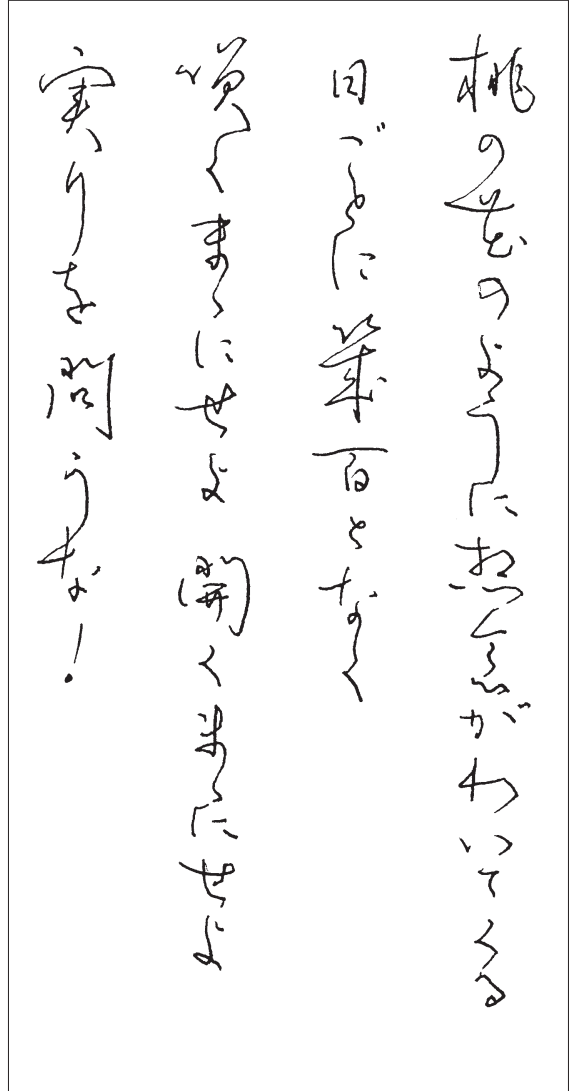 桃の花のように想念がわいてくる
日ごとに幾百となく
咲くままにせよ 開くままにせよ
実りを問うな!